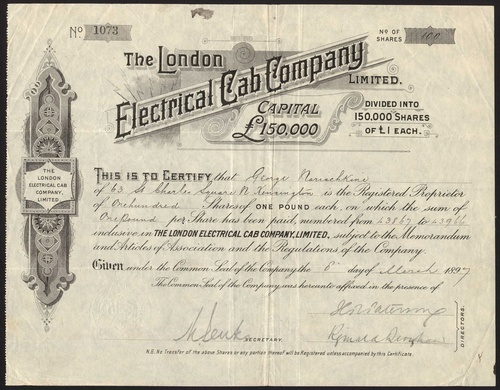 No 1073
No OF SHARES 100
The London
Electrical Cab Company
LIMITED.
CAPITAL
£150,000
DIVIDED INTO
150,000 SHARES
OF £1 EACH.
THE LONDON
ELECTRICAL CAB
COMPANY,
LIMITED
THIS IS TO CERTIFY that George
of 63 St Charles Square N. Kensington is the Registered Proprietor
of One hundred Shares of ONE POUND each, on which the sum of
One Pound per Share has been paid, numbered from to
inclusive in THE LONDON ELECTRICAL CAB COMPANY, LIMITED, subject to the Memorandum
and Articles of Association and the Regulations of the Company.
Given under the Common Seal of the Company the 8 day of March 1897
The Common Seal of the Company was hereunto affixed in the presence of
SECRETARY.
DIRECTORS.
N.B. No Transfer of the above Shares or any portion thereof will be Registered unless accompanied by this Certificate.